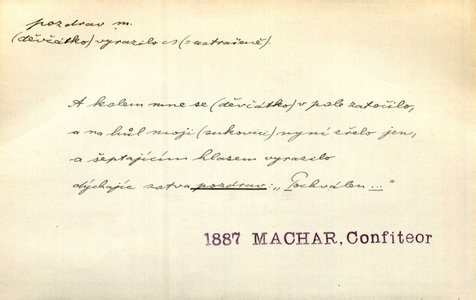 pozdrav m.
(děvčátko) vyrazilo cs (ustrašeně).
A kolem mne se (děvčátko) v pole zatočilo,
a na hůl moji (sukovici) nyní zřelo jen,
a šeptajícím hlasem vyrazilo
dýchajíc sotva pozdrav: „Pochválen ..."
1887 MACHAR, Confiteor